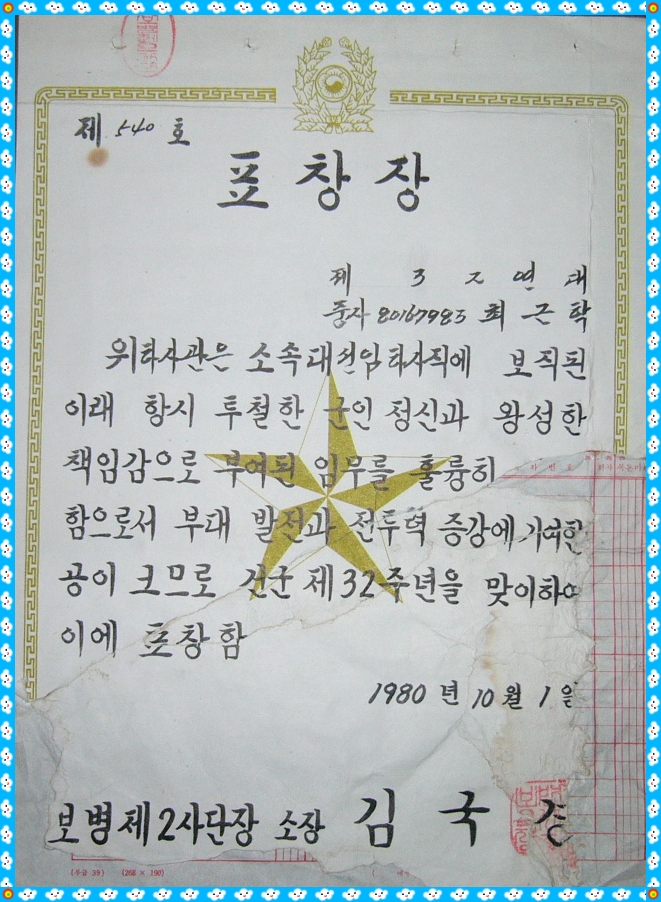 제 540 호
표 창 장
제 3 2 연 대
중사 80167985 최 근 학
위 하사관은 소속대 선임하사직에 보직된
이래 항시 투철한 군인 정신과 왕성한
책임감으로 부여된 임무를 훌륭히
함으로서 부대 발전과 전투력 증강에 기여한
공이 크므로 건군 제32주년을 맞이하여
이에 표창함
1980 년 10 월 1 일
보병 제2사단장 소장 김 국
(268 × 190)